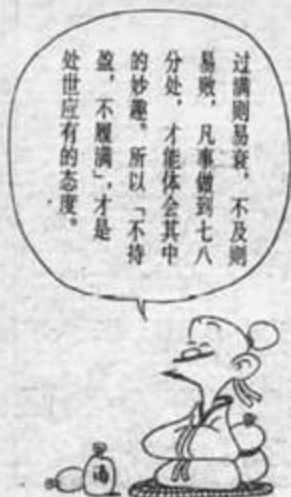 过满则易衰，不及则
易败，凡事做到七八
分处，才能体会其中
的妙趣。所以「不持
盈，不履满」，才是
处世应有的态度。
酒